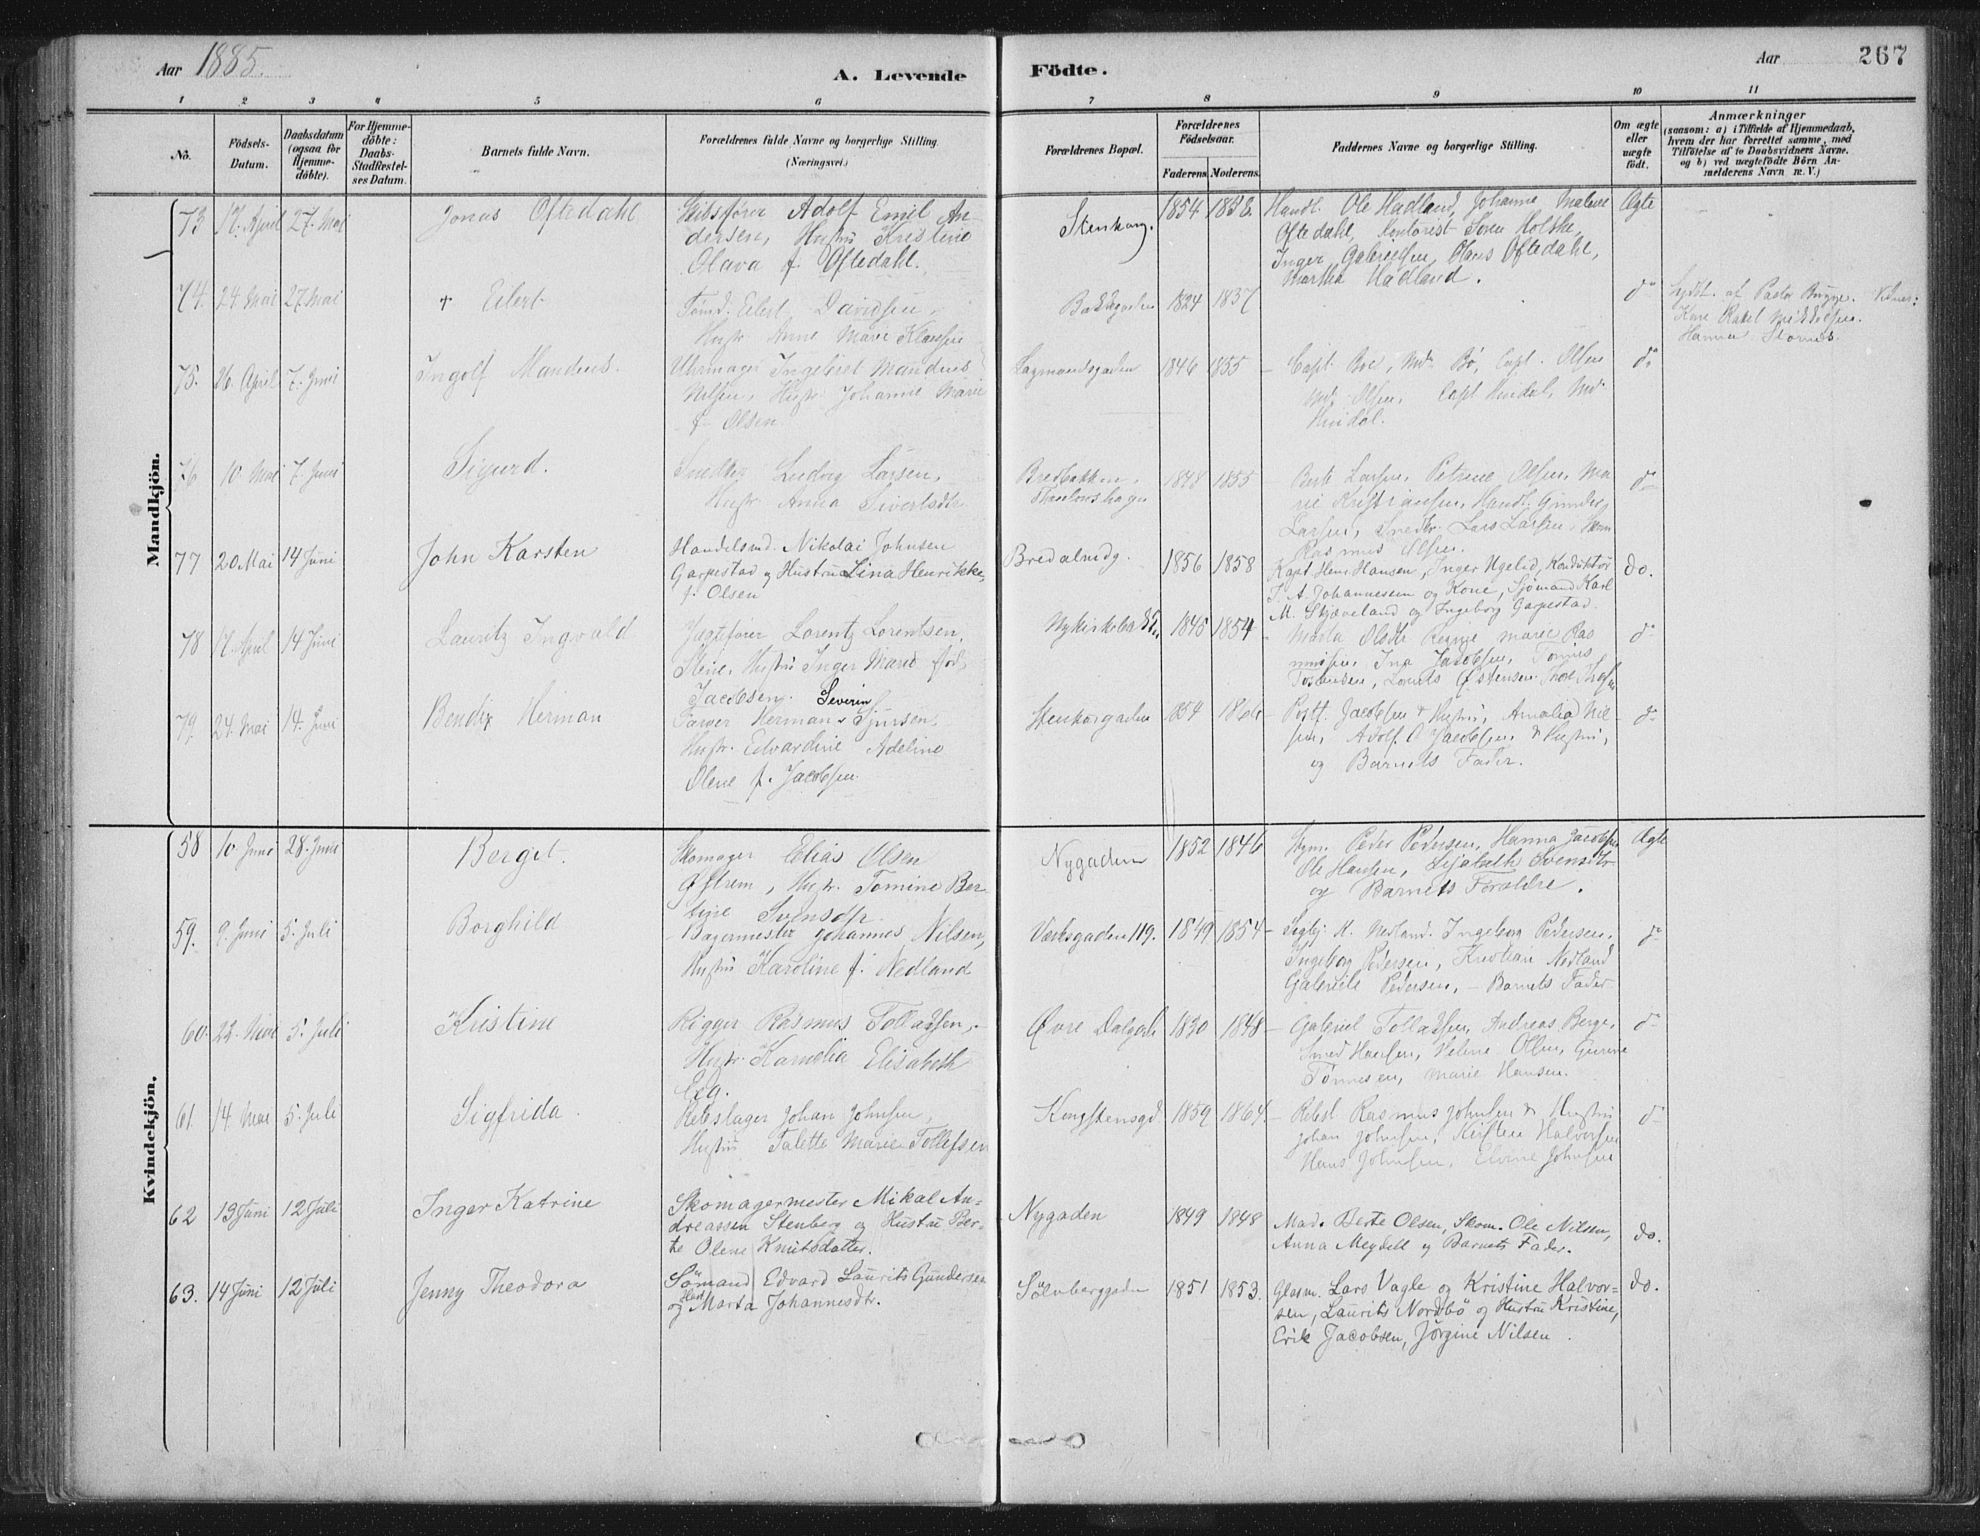 Aar 1885.
A. Levende Födte.
Aar
267
1 2 3 4 5 6 7 8 9 10 11
No.
Födsels-
Datum.
Daabsdatum
(ogsaa for
Hjemme-
döbte).
For Hjemme-
döbte:
Daabs-
Stadfæstel-
ses Datum.
Barnets fulde Navn.
Forældrenes fulde Navne og borgerlige Stilling.
(Næringsvei.)
Forældrenes Bopæl.
Forældrenes
Födselsaar.
Faderens. Moderens.
Faddernes Navne og borgerlige Stilling.
Om ægte
eller
uægte
födt.
Anmærkninger
(saasom: a) i Tilfælde af Hjemmedaab,
hvem der har forrettet samme, med
Tilföielse af to Daabsvidners Navne.
og b) ved uægtefödte Börn An-
melderens Navn m. V.)
Mandkjön.
73 17. April 27. Mai
Jonas Oftedahl
Skibsfører Adolf Emil An-
dersen, Hustru Kristine
Olava f. Oftedahl.
Stenkarg.
1854 1858.
Handl. Ole Hadland, Johanne Malene
Oftedahl, Kontorist Søren Holske,
Inger Gabrielsen, Olaus Oftedahl,
Martha Hadland.
Ægte
74. 24. Mai 27 Mai
+ Eilert
Tømd. Eilert Davidsen,
Hustr. Anne Marie Klausen
Bakkegaden
1824 1837
do
af Pastor Bugge. Vidner:
Kone Rakel Mikkelsen.
Hanna
75. 26. April 7. Juni
Ingolf Mandeus.
Uhrmager Ingebret Mandeus
Nilsen, Hustr. Johanne Marie
f. Olsen
Lagmandsgaden
1846 1855
Capt. Boe, Md. Bø, Capt. Olsen
Md. Olsen, Capt Hindal, Md.
Hindal.
do
76 10. Mai 7. Juni
Sigurd.
Snedker Ludvig Larsen,
Hustr. Anna Sivertsdtr
Bredbakken,
1848 1855
Berte Larsen, Petrine Olsen, Ma
rie Kristiansen, Handl. Gunder
Larsen, Snedkr. Lars Larsen,
Rasmus Olsen.
do
77 20 Mai 14 Juni
John Karsten
Handelsmd. Nikolai Johnsen
Garpestad og Hustru Lina Henrikke
f. Olsen
Bredalmdg.
1856 1858
Kapt. Hans Hansen, Inger Ugelid, Konduktør
T. A. Johannessen og Kone, Sjømand Karl
M. Skjæveland og Ingeborg Garpestad.
do.
78 17. April 14 Juni
Lauritz Ingvald
Jagtefører Lorentz Lorentsen,
Stene, Hustru Inger Marie fød.
Jacobsen.
1845 1854
Marta Olsdtr Marie Ras
mussen, Ina Jacobsen, Tønnes
Østensen
do
79. 24. Mai 14. Juni
Bendix Herman
Severin
Farver Herman Sjursen,
Hustr. Edvardine Adeline
Olene f. Jacobsen
Stenkargaden
1854 1866
Jacobsen & Hustru, Amalia Nil-
sen, Adolf A Jacobsen & Hustru,
og Barnets Fader.
do
Kvindekjön.
58 10. Juni 28. Juni
Berget.
Skomager Elias Olsen
Østrem, Hustr. Tomine Ber
tine Svensdtr.
Nygaden
1852 1846
Peder Pedersen, Hanna Jacobsen
Ole Hansen, Svensdtr
og Barnets Forældre.
Ægte
59. 9. Juni 5. Juli
Borghild
Bagermester Johannes Nilsen,
Hustru Karoline f. Nedland
Værksgaden 119.
1849 1854
H. Nedland. Ingeborg Pedersen,
Ingeborg Pedersen, Kristian Nedland
Gabriele Pedersen, - Barnets Fader
do
60. 22. Mai 5. Juli
Kristine
Rigger Rasmus Tollaksen,
Hustr. Kornelia Elisabeth
Eeg.
Øvre Dalgade
1830 1848
Gabriel Tollaksen, Andreas Berge,
Smed Hansen, Helene Olsen, Gurine
Tønnesen, Marie Hansen.
do
61. 14. Mai 5. Juli
Sigfrida.
Rebslager Johan Johnsen,
Hustru Talette Marie Tollefsen
Kongstensgd
1859 1864.
Rebsl. Rasmus Johnsen & Hustru
Johan Johnsen, Kirsten Halvorsen
Hans Johnsen, Elvine Johnsen
do
62 13 Juni 12 Juli
Inger Katrine
Skomagermester Mikal An-
dreassen Stenberg og Hustru Ber-
te Olene Knutsdatter.
Nygaden
1849 1848
Mad. Berte Olsen, Skom. Ole Nilsen,
Anna Meydell og Barnets Fader.
do.
63. 14 Juni 12 Juli
Jenny Theodora
Sömand Edvard Laurits Gundersen
og Hust. Marta Johannesdtr.
Sölvberggaden
1851 1853.
Glasm. Lars Vagle og Kristine Halvor-
sen, Laurits Nordbö og Hustru Kristine,
Erik Jacobsen, Jörgine Nilsen.
do.